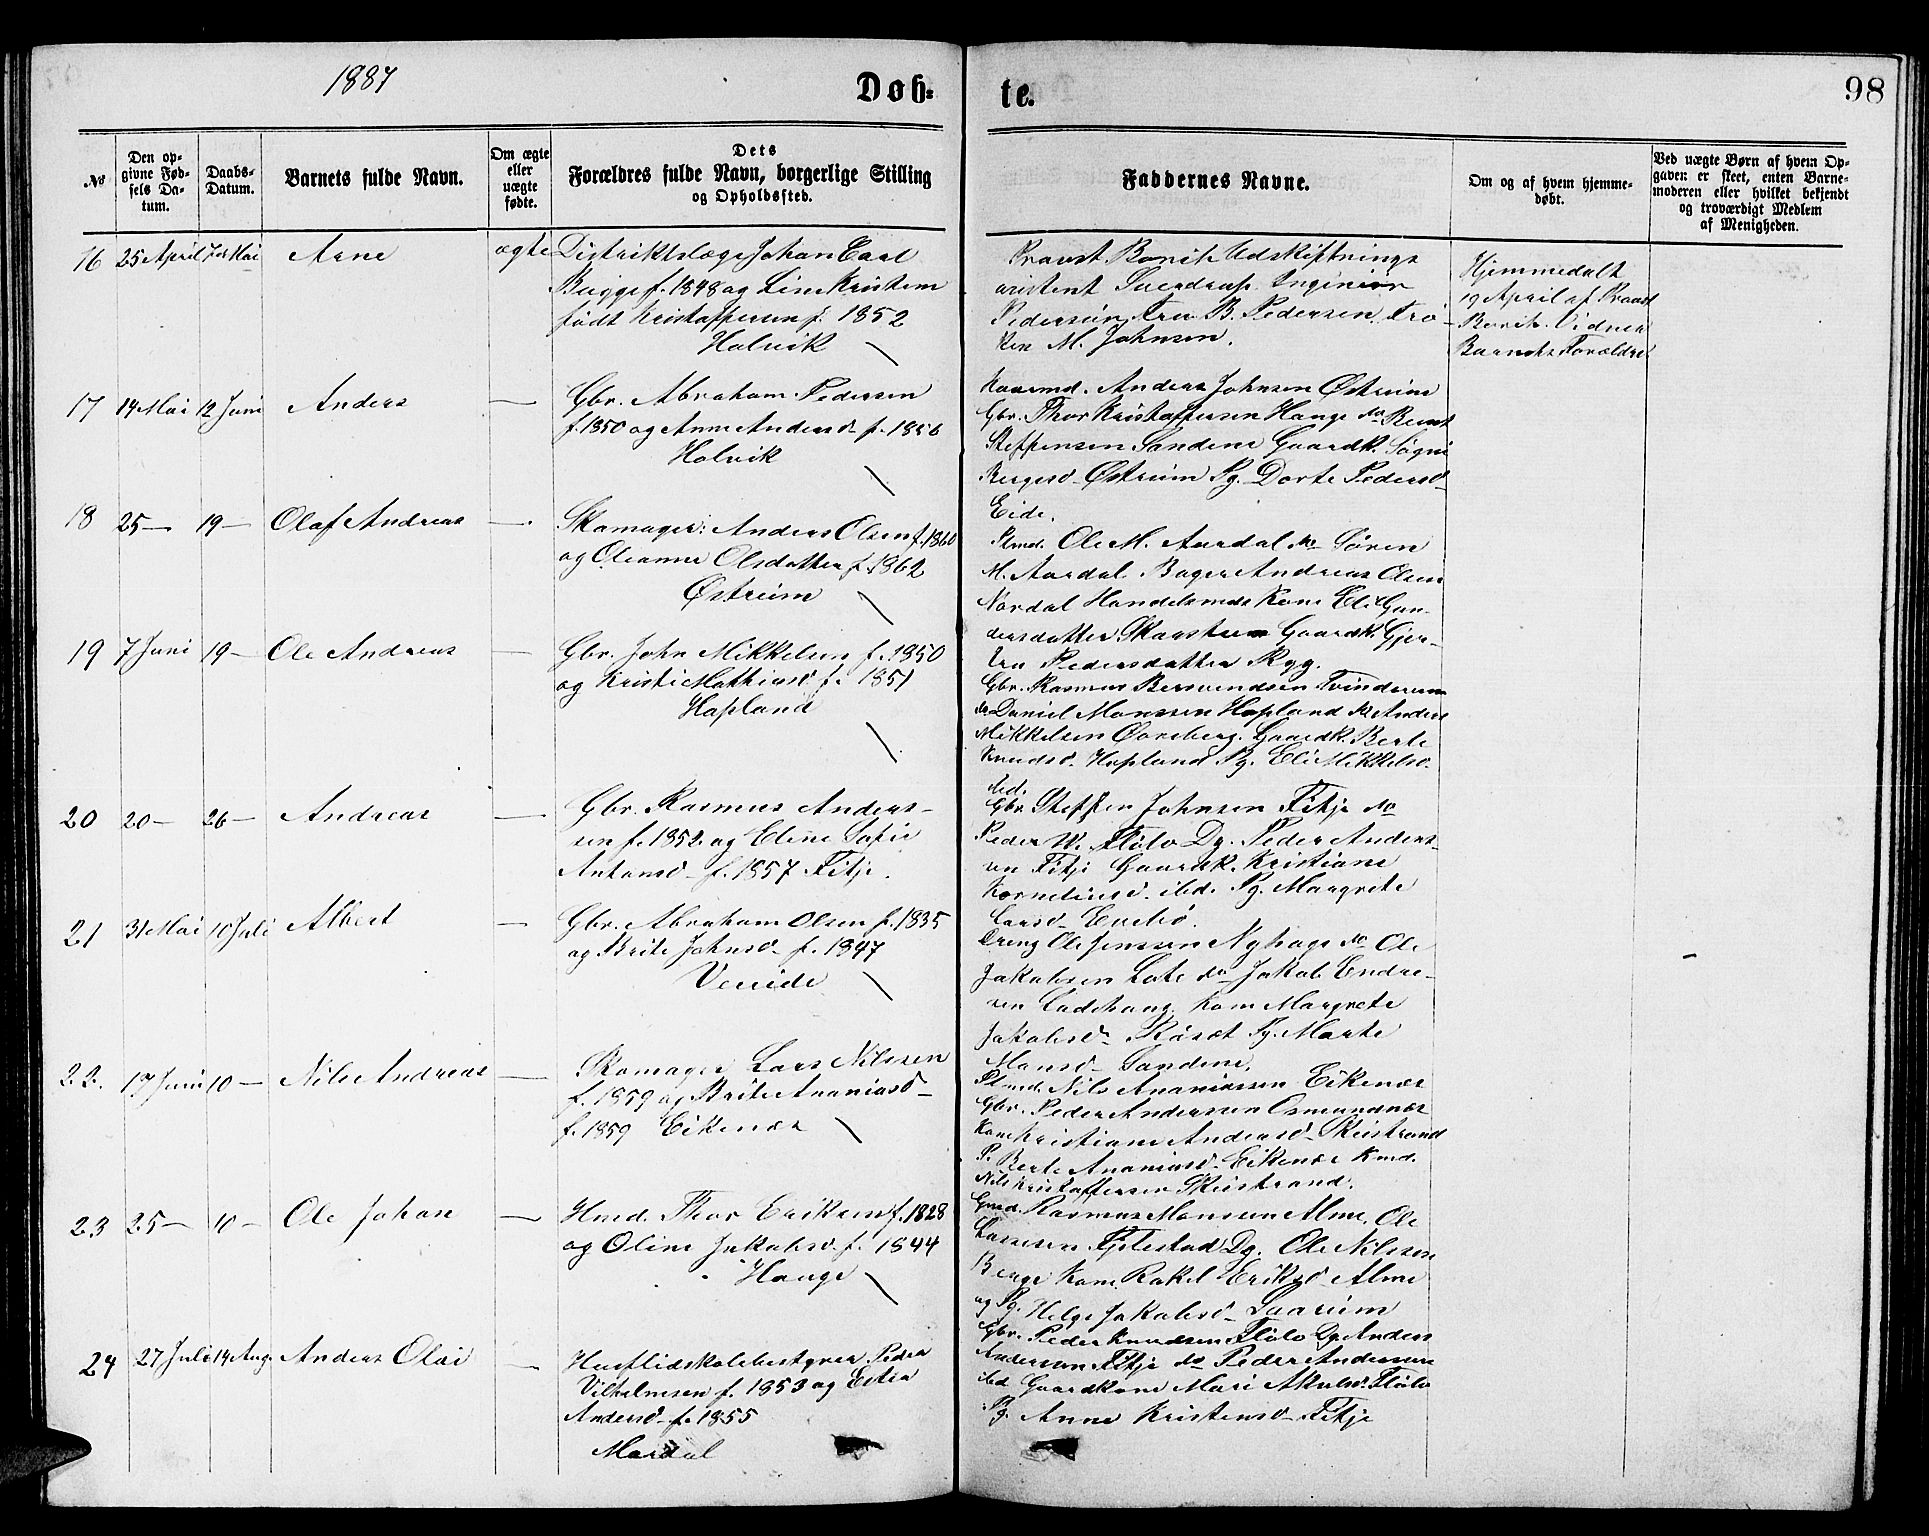 1887
Døb-
te.
98
No
Den op-
givne Fød-
sels Da-
tum.
Daabs-
Datum.
Barnets fulde Navn.
Om ægte
eller
uægte
fødte.
Dets
Forældres fulde Navn, borgerlige Stilling
og Opholdssted.
Faddernes Navne.
Om og af hvem hjemme-
døbt.
Ved uægte Børn af hvem Op-
gaven er skeet, enten Barne-
moderen eller hvilket bekjendt
og troværdigt Medlem
af Menigheden.
16 25 April Mai Arne ægte Distriktslæge Johan Carl
Bugge f. 1848 og Line Kristine
født Kristoffersen f. 1852
Holvik
Provst Barth Udskiftnings
asistent Sverdrup Ingeniør
Pedersen Fru B. Pedersen Frø-
ken M. Johnsen.
Hjemmedøbt
19 April af Provst
Barth. Vidner
Barnets Forældre
17 14 Mai 12 Juni Anders — Gbr. Abraham Pedersen
f. 1850 og Anne Andersd. f. 1856
Holvik
Kaarmd. Anders Johnsen Østreim
Gbr. Thor Kristoffersen Hauge do Bernt
Steffensen Sandene Gaardk. Søgni
Bergesd. Østreim Pg. Dorte Pedersd.
Eide.
18 25 — 19 — Olaf Andreas — Skomager: Anders Olsen f. 1860
og Oleanna Olsdatter f. 1862
Østreim
Plmd. Ole M. Aardal do Søren
M. Aardal Bager Andreas Olsen
Nordal Handelsmds Kone Eli Gun-
dersdatter Skarstein Gaardk. Gjer-
tru Pedersdatter Ryg.
19 7 Juni 19 — Ole Andreas — Gbr. John Mikkelsen f. 1850
og Kristi Mathiasd. f. 1851
Hopland
Gbr. Rasmus Bersvendsen Tvinnereim
do Daniel Monssen Hopland do Anders
Mikkelsen Øvreberg. Gaardk. Berte
Knudsd. Hopland Pg. Eli Mikkelsd.
ibd.
20 20 — 26 — Andreas — Gbr. Rasmus Anders-
sen f. 1852. og Eline Sofie
Antonsd. f. 1857 Fitje.
Gbr Steffen Johnsen Fitje do
Peder W. Fløtø Dg. Peder Anders-
sen Fitje Gaardsk. Kristiane
Korneliusd. ibd. Pg. Margrete
Larsd. Evebø.
21 31 Mai 10 Juli Albert — Gbr. Abraham Olsen f. 1835
og Brite Johnsd. f. 1847
Vereide
Dreng Ole Jenssen Nyhage do Ole
Jakobsen Lote do Jakob Endre-
sen Ladehaug. Kone Margrete
Jakobsd. Råsæt Pg. Marte
Monsd. Sandene.
22. 17 Juni 10 — Nils Andreas — Skomager Lars Nilssen
f. 1859 og Brite Ananiasd.
f. 1859 Eikenæs
Plmd. Nils Ananiassen Eikenæs
Gbr. Peder Anderssen Osmundnæs
Kone Kristiane Andersd. Skeistrand
P. Berte Ananiasd. Eikenæs Kmd.
Nils Kristoffersen Skeistrand.
23 25 — 10 — Ole Johan — Hmd. Thor Eriksen f. 1828
og Oline Jakobsd. f. 1844
Hauge
Gmd. Rasmus Monssen Alme. Ole
Lassesen Fjelestad Dg. Ole Nilssen
Berge Kone Rakel Eriksd. Alme
og Pg. Helge Jakobsd. Saareim
24 27 Juli 14 Aug. Anders Olai — Husflidskolebestyrer Peder
Vilhelmsen f. 1853 og Ester
Andersd. f. 1855
Mardal
Gbr. Peder Knudsen Fløtø Dg. Anders
Anderssen Fitje do Peder Anderssen
ibd Gaardkone Mari Akselsd. Fløtø
Pg. Anne Kristensd. Fitje